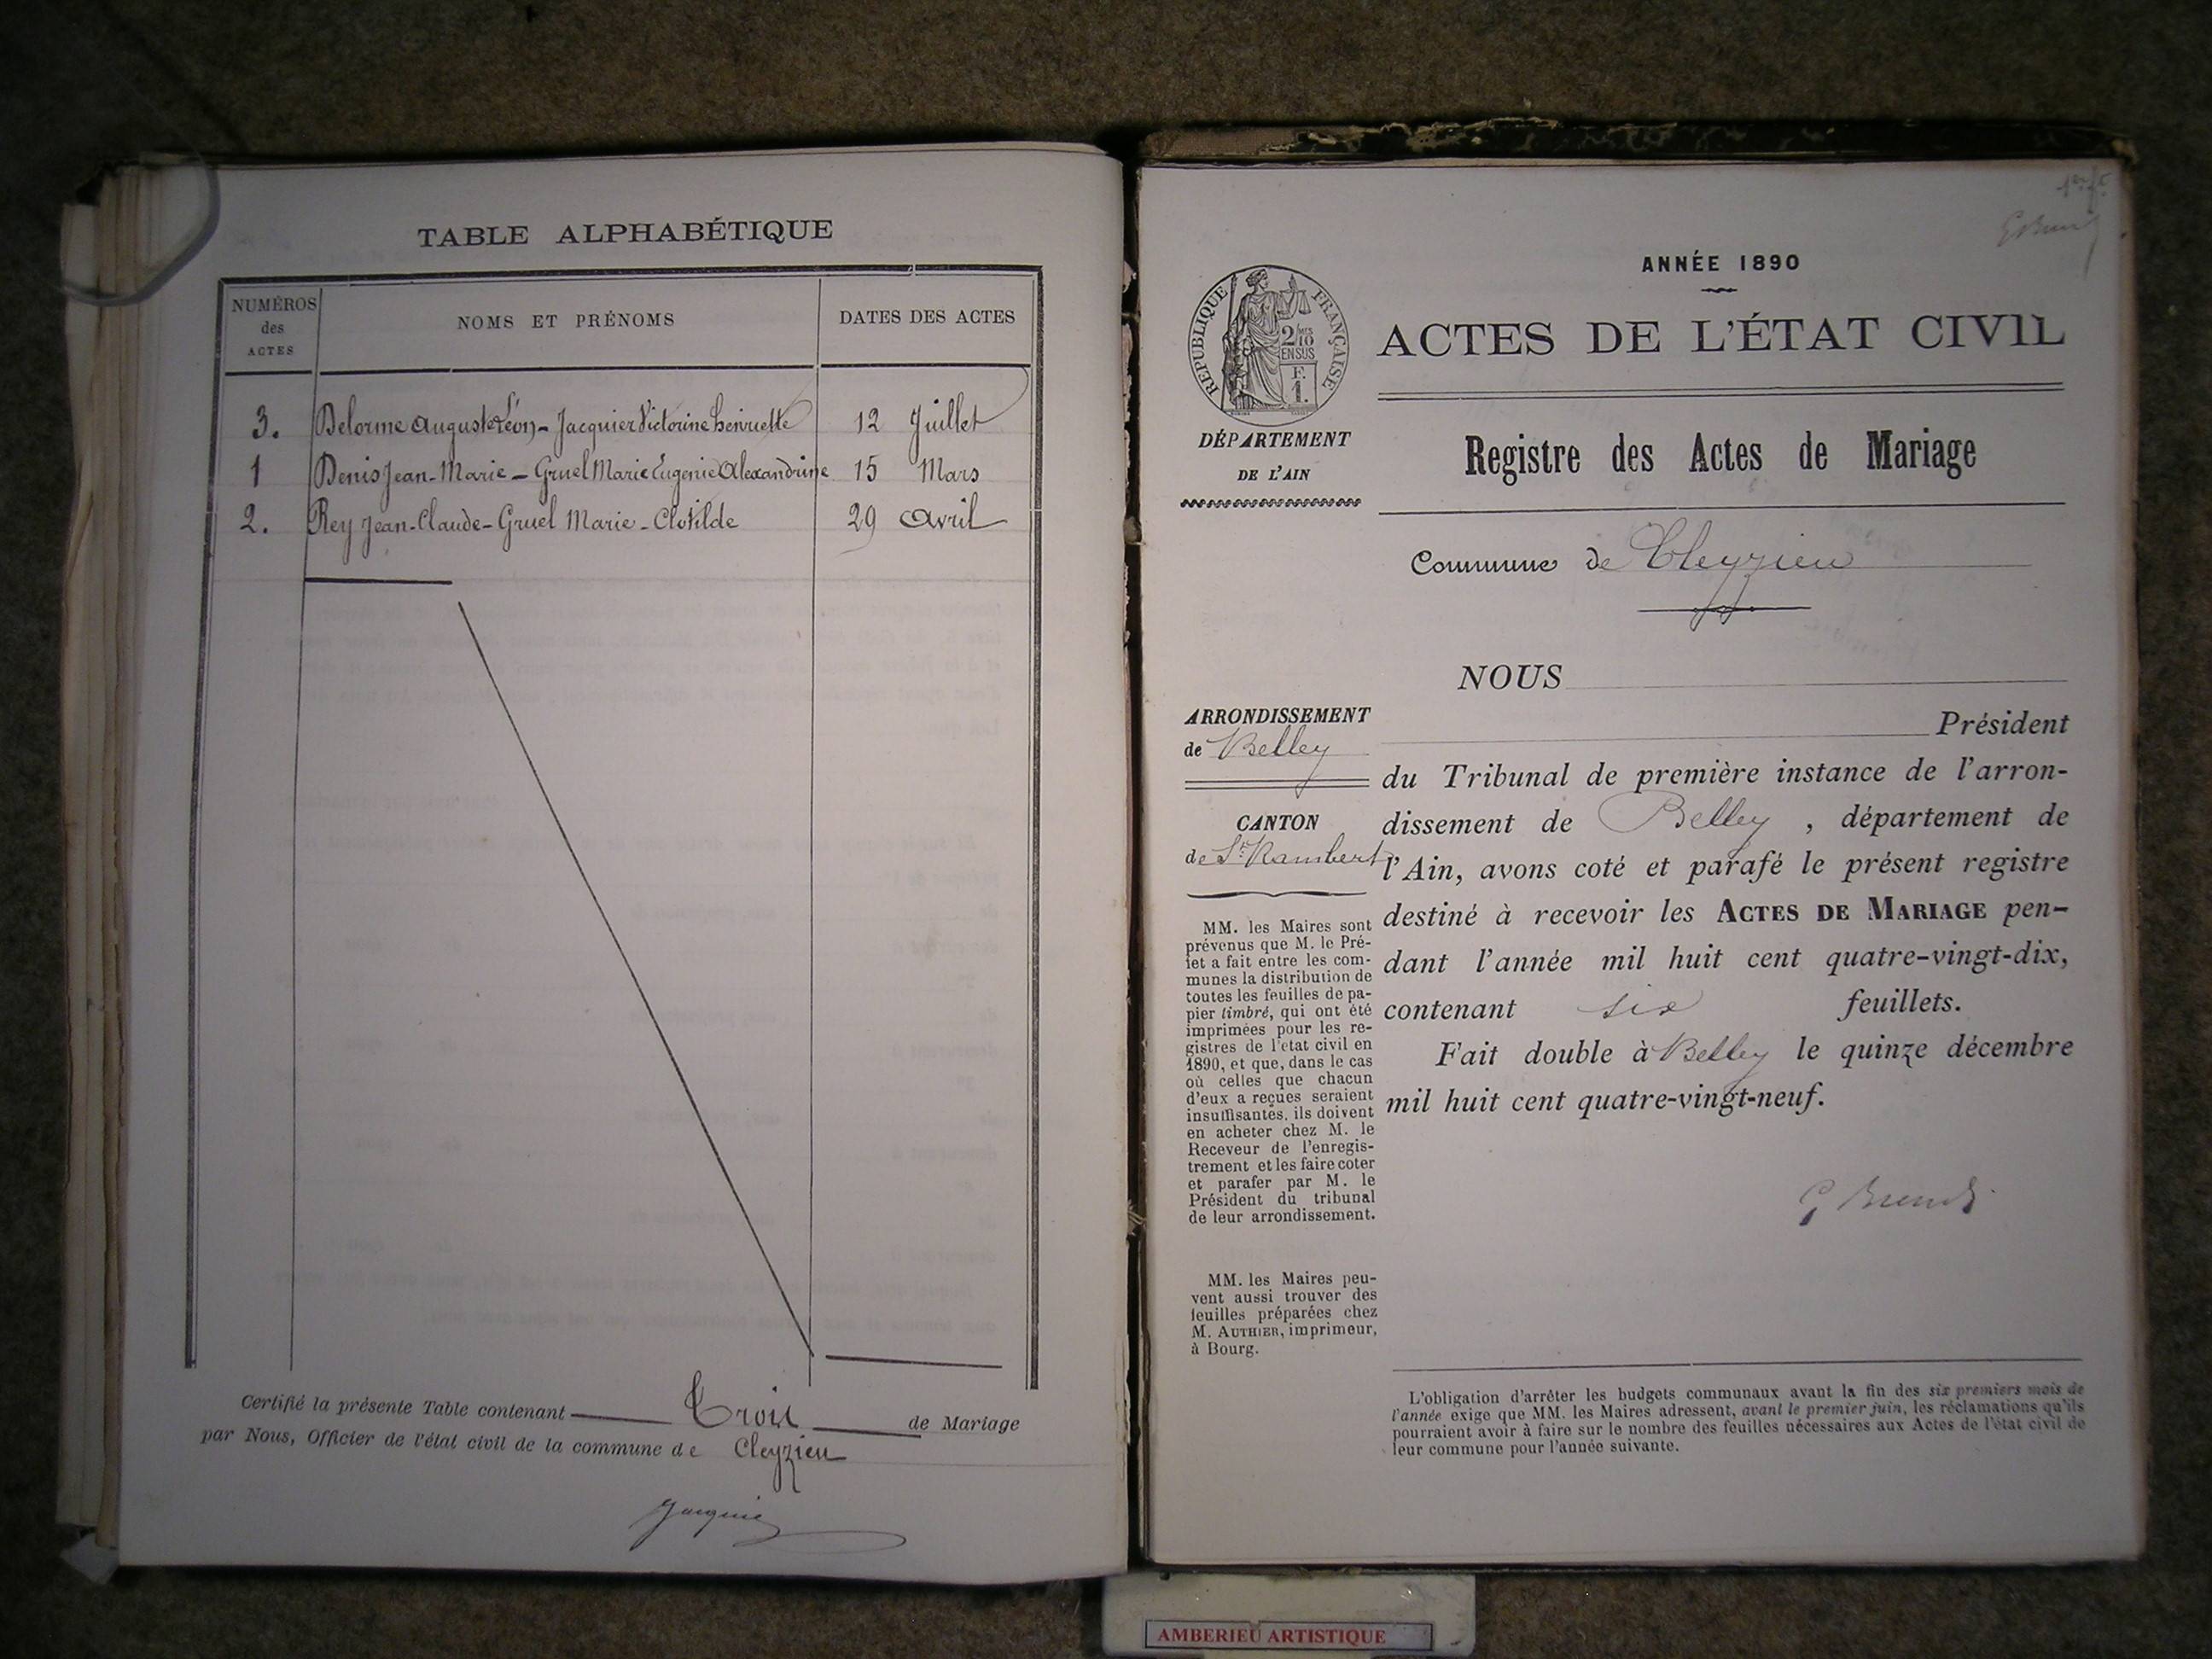 TABLE ALPHABÉTIQUE
NUMÉROS des ACTES
NOMS ET PRÉNOMS
DATES DES ACTES
3. Delorme Auguste Léon - Jacquier Victorine henriette 12 Juillet
1 Denis Jean-Marie - Gruel Marie Eugenie Alexandrine 15 Mars
2. Rey Jean-Claude - Gruel Marie-Clotilde 29 Avril
Certifié la présente Table contenant Trois de Mariage
par Nous, Officier de l'état civil de la commune de Cleyzieu
ANNÉE 1890
RÉPUBLIQUE FRANÇAISE
2/10
EN SUS
F.
1.
ACTES DE L'ÉTAT CIVIL
DÉPARTEMENT
DE L'AIN
Registre des Actes de Mariage
Commune de Cleyzieu
NOUS
ARRONDISSEMENT
de Belley
CANTON
de St. Rambert
MM. les Maires sont
prévenus que M. le Pré-
fet a fait entre les com-
munes la distribution de
toutes les feuilles de pa-
pier timbré, qui ont été
imprimées pour les re-
gistres de l'état civil en
1890, et que, dans le cas
où celles que chacun
d'eux a reçues seraient
insuffisantes, ils doivent
en acheter chez M. le
Receveur de l'enregis-
trement et les faire coter
et parafer par M. le
Président du tribunal
de leur arrondissement.
MM. les Maires peu-
vent aussi trouver des
feuilles préparées chez
M. AUTHIER, imprimeur,
à Bourg.
Président
du Tribunal de première instance de l'arron-
dissement de Belley, département de
l'Ain, avons coté et parafé le présent registre
destiné à recevoir les ACTES DE MARIAGE pen-
dant l'année mil huit cent quatre-vingt-dix,
contenant six feuillets.
Fait double à Belley le quinze décembre
mil huit cent quatre-vingt-neuf.
L'obligation d'arrêter les budgets communaux avant la fin des six premiers mois de
l'année exige que MM. les Maires adressent, avant le premier juin, les réclamations qu'ils
pourraient avoir à faire sur le nombre des feuilles nécessaires aux Actes de l'état civil de
leur commune pour l'année suivante.
AMBERIEU ARTISTIQUE